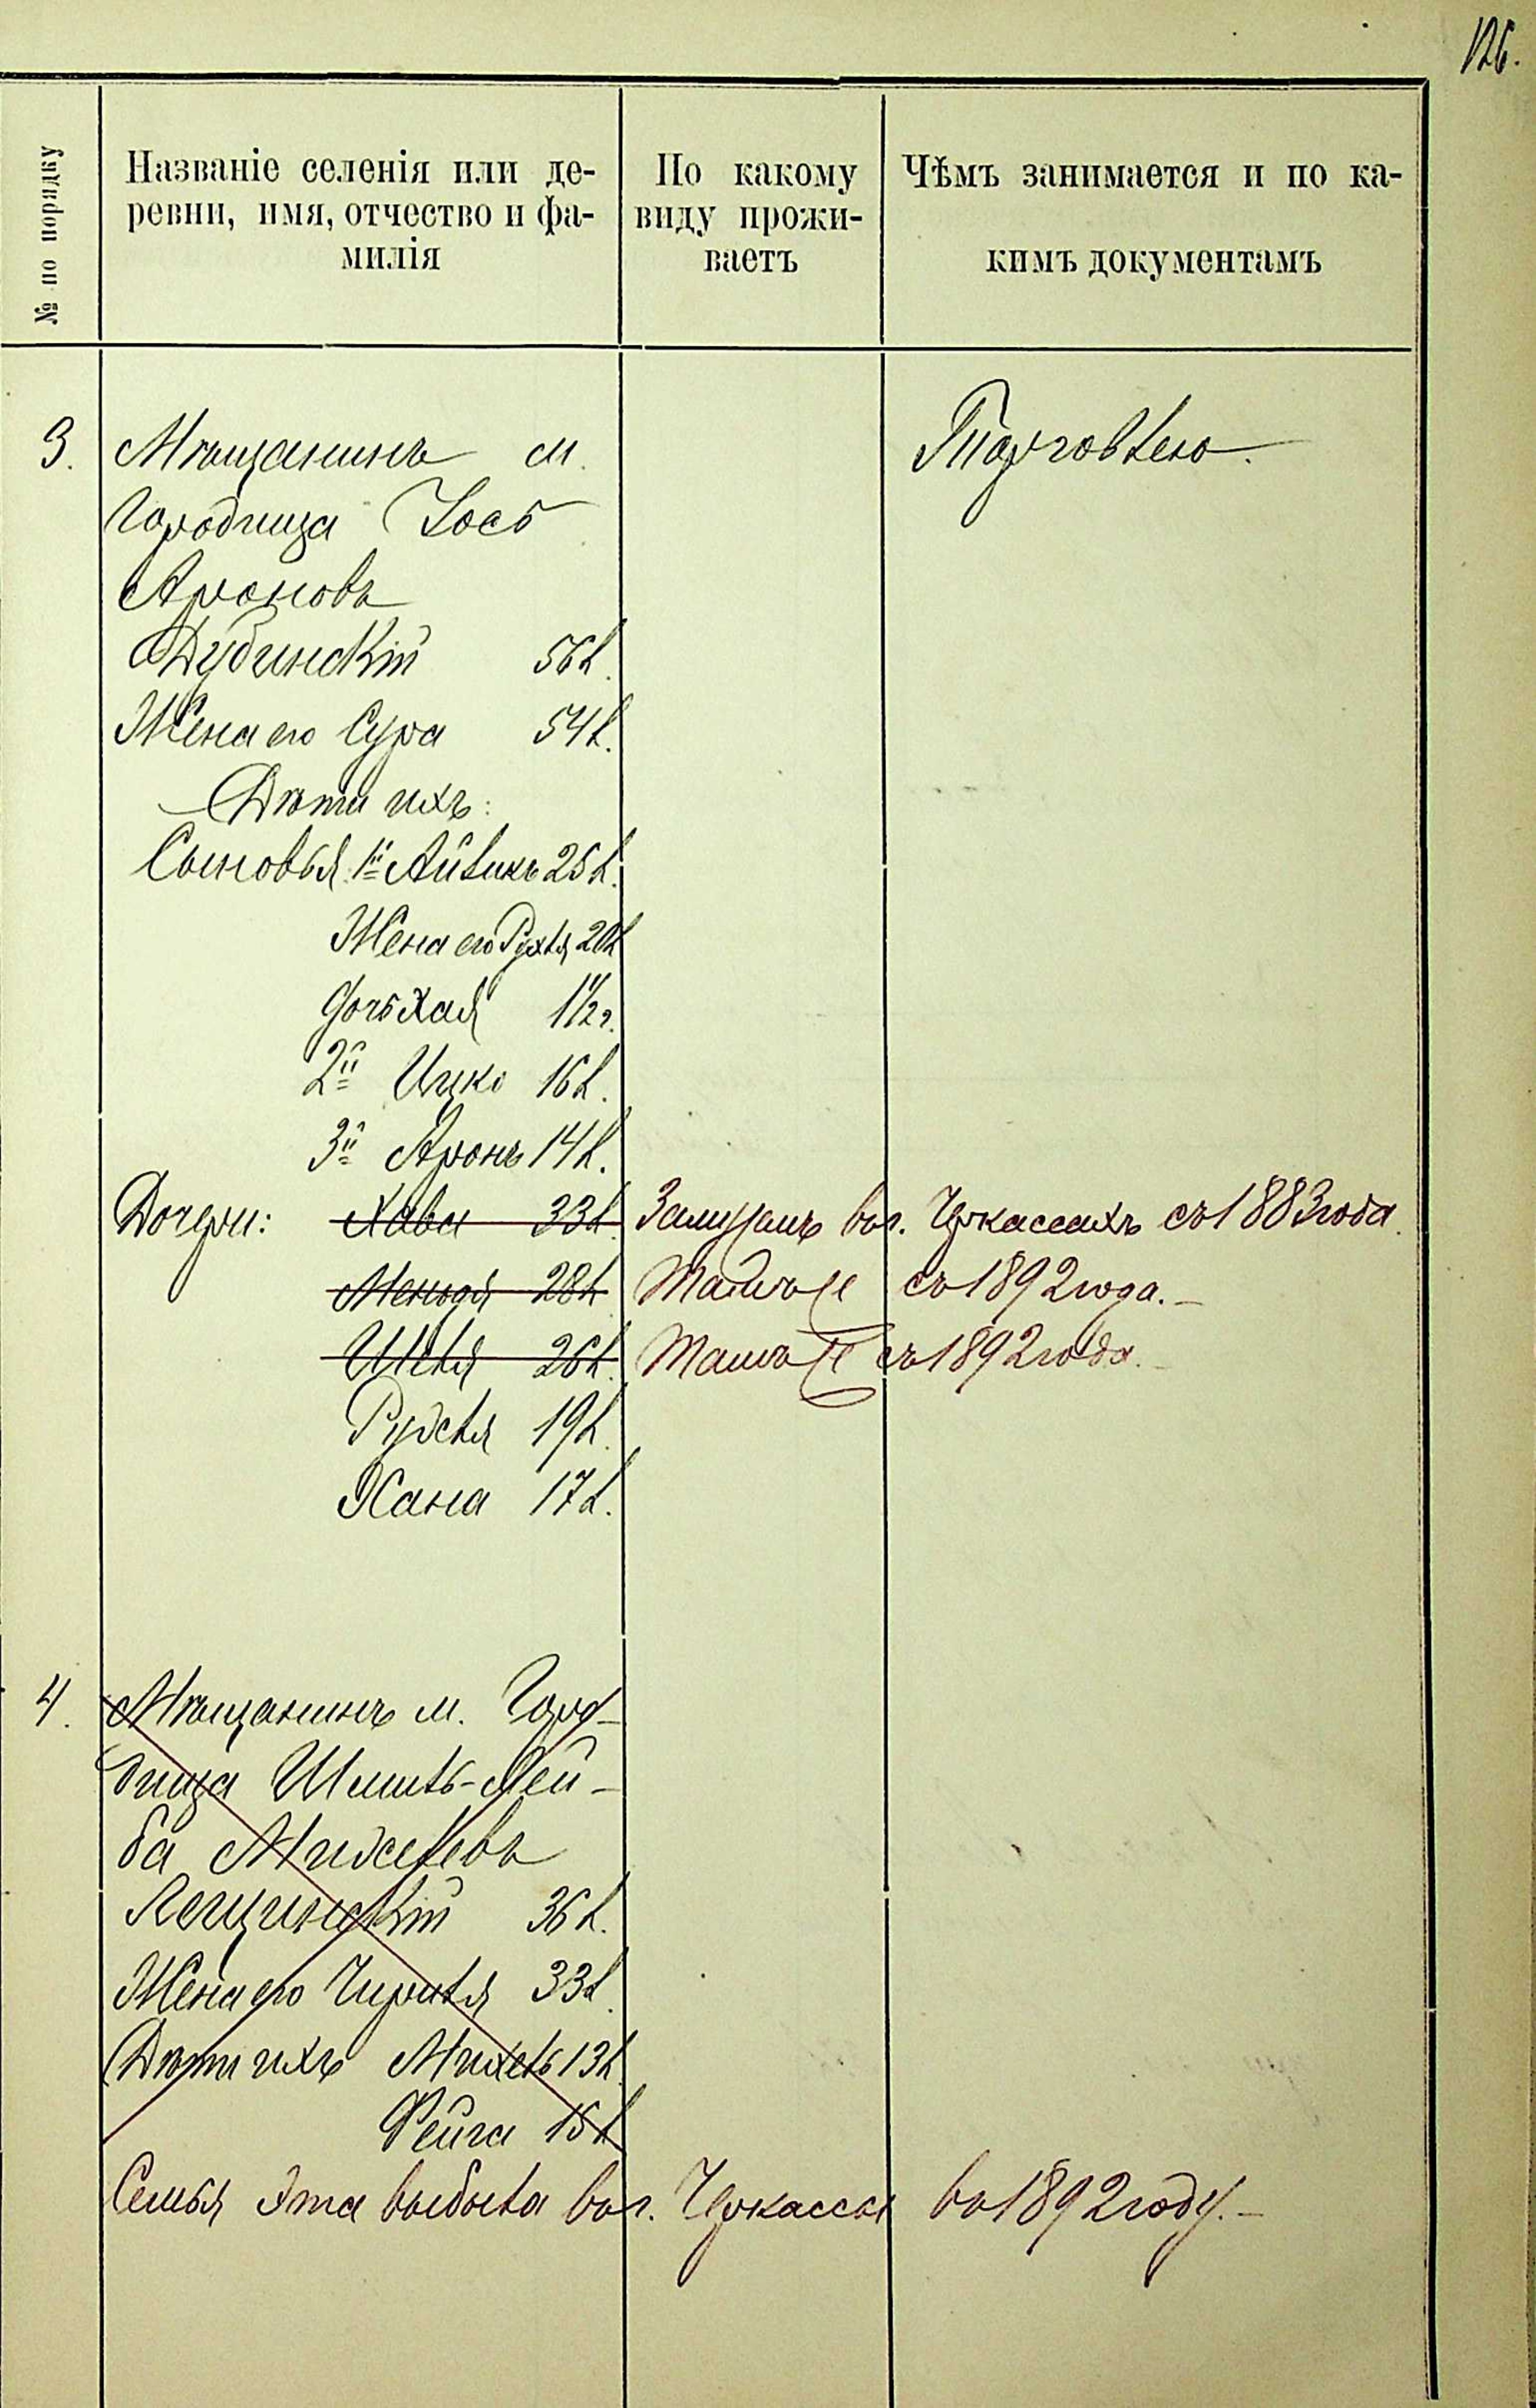 126.
№ по порядку
Названіе селенія или де-
ревни, имя, отчество и фа-
милія
По какому
виду прожи-
ваетъ
Чѣмъ занимается и по ка-
кимъ документамъ
3. Мѣщанинъ м. Торговлею.
Городища Іось
Ароновъ
Дубинскій 56 л.
Жена его Сура 54 л.
Дѣти ихъ:
Сыновья 1й Айзикъ 25 л.
Жена его Рухля 20 л
дочь Хая 1 1/2 г.
2й Ицко 16 л.
3й Аронъ 14 л.
Дочери: Хава 33 л. Замужемъ въ г. Черкассахъ съ 1883 года.
28 л. съ 1892 года.
26 л. съ 1892 года.
Рухля 19 л.
Хана 17 л.
4. Мѣщанинъ м. Горо-
дища Шмиль-Лей-
ба Михелевъ
Лещинскій 36 л.
Жена его 33 л.
Дѣти ихъ Михель 13 л.
Фейга 15 л
Семья эта выбыла въ г. Черкассы въ 1892 году.